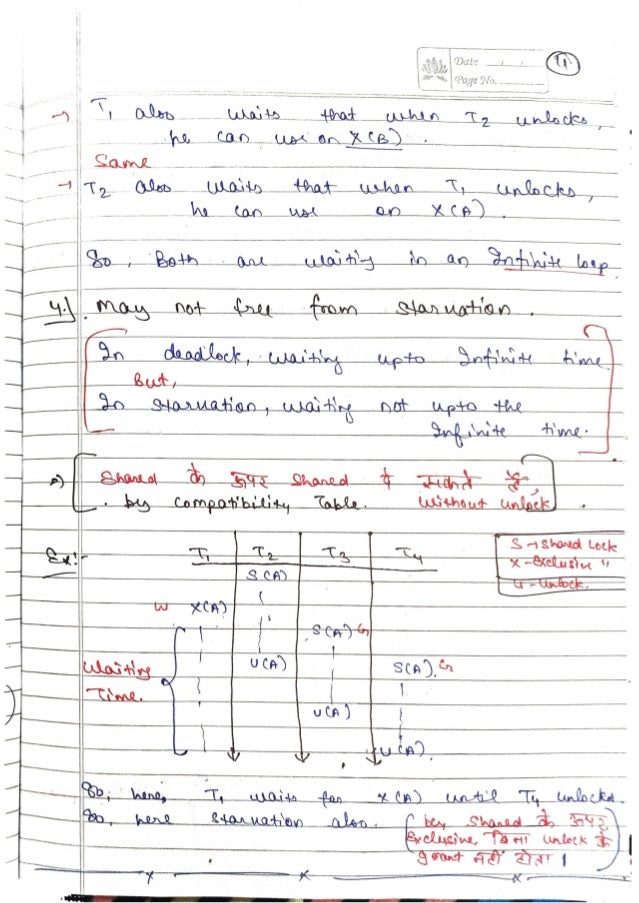 Date
11
Page No.
→ T1 also waits that when T2 unlocks,
he can use on X(B).
Same
→ T2 also waits that when T1 unlocks,
he can use on X(A).
So, Both are waiting in an Infinite loop.
4.) may not free from starvation.
In deadlock, waiting upto Infinite time.
But,
In starvation, waiting not upto the
Infinite time.
Shared के ऊपर Shared दे सकते हैं,
by compatibility Table. without unlock
S → Shared Lock
X - Exclusive "
U - Unlock.
Ex:- T1 T2 T3 T4
S(A)
W X(A)
S(A) Gr
U(A) S(A). Gr
Waiting
Time.
U(A)
U(A).
So, here, T1 waits for X(A) until T4 unlocks.
So, here starvation also. (bcz Shared के ऊपर
Exclusive बिना unlock के
grant नहीं होता।